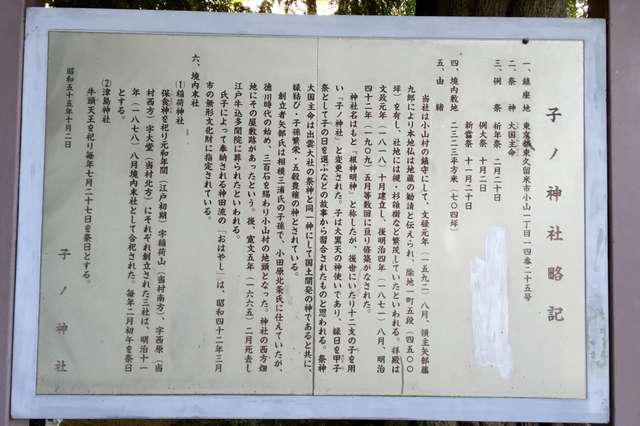 子ノ神社略記
一、鎮座地 東京都東久留米市小山一丁目一四番二十五号
二、祭神 大国主命
三、例祭 祈年祭 二月二十日
例大祭 十月二日
新嘗祭 十一月二十日
四、境内敷地 二三二三平方米(七〇四坪)
五、由緒
当社は小山村の鎮守にして、文禄元年(一五九二)八月、領主矢部藤
九郎により本地仏は地蔵の勧請と伝えられ、除地一町五段(四五〇〇
坪)を有し、社地には槻・杉雑樹など繁茂していたといわれる。祥殿は
文政元年(一八一八)十月建立し、後明治四年(一八七一)八月、明治
四十二年(一九〇九)五月等数回に亘り修築がなされた。
神社名はもと「根神明神」と称したが、後世にいたり十二支の子を用
い「子ノ神社」と変更された。子は大黒天の神使いであり、縁日を甲子
祭として子の日を選ぶなどの故事から習合されたものと思われる。祭神
大国主命は出雲大社の祭神と同一神にして国土開発の神であると共に、
縁結び・子孫繁栄・五穀豊穣の神とされている。
創立者矢部氏は相模三浦氏の子孫で、小田原北条氏に仕えていたが、
徳川時代の始め、三百石を賜わり小山村の地頭となった。神社の西方畑
地にその屋敷跡があったという。後、寛文五年(一六六五)二月死去し
江戸牛込多聞院に葬られたといわれる
氏子によって奉納される神田流の「おはやし」は、昭和四十二年三月
市の無形文化財に指定されている。
六、境内末社
(1)稲荷神社
保食神を祀り元和年間(江戸初期)字稲荷山(当村南方)、字西原(当
村西方)字大堂(当村北方)にそれぞれ創立された三社は、明治十一
年(一八七八)八月境内末社として合祀された。毎年二月初午を祭日
とする。
(2)津島神社
牛頭天王を祀り毎年七月二十七日を祭日とする。
昭和五十五年十月二日
子ノ神社